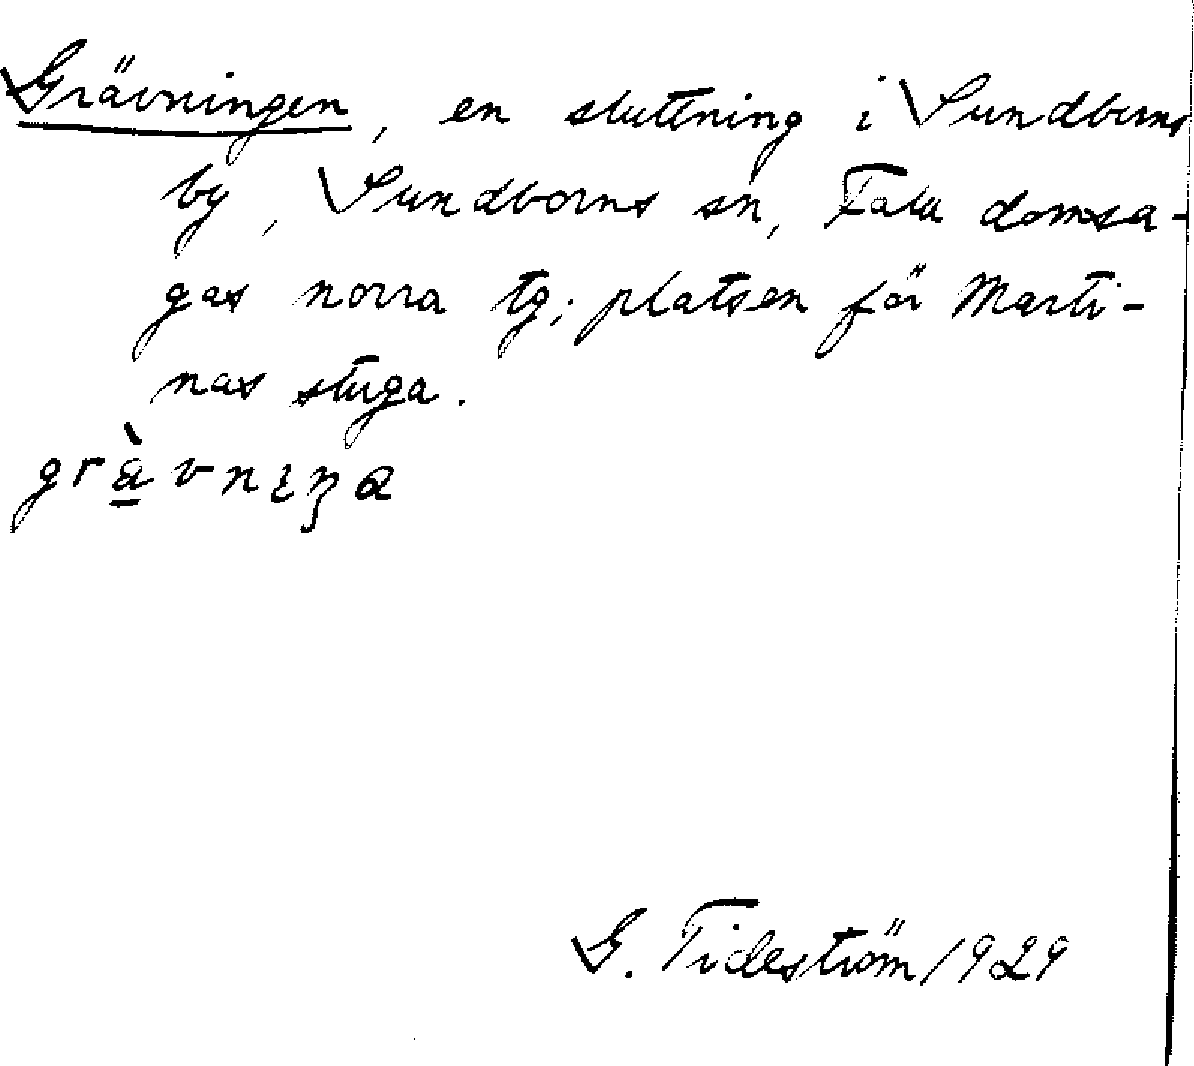 Grävningen, en sluttning i Sundborns
by, Sundborns sn, Falu domsa-
gas norra tg; platsen för Marti-
nas stuga.
grä̀vniŋa
G. Tideström 1929